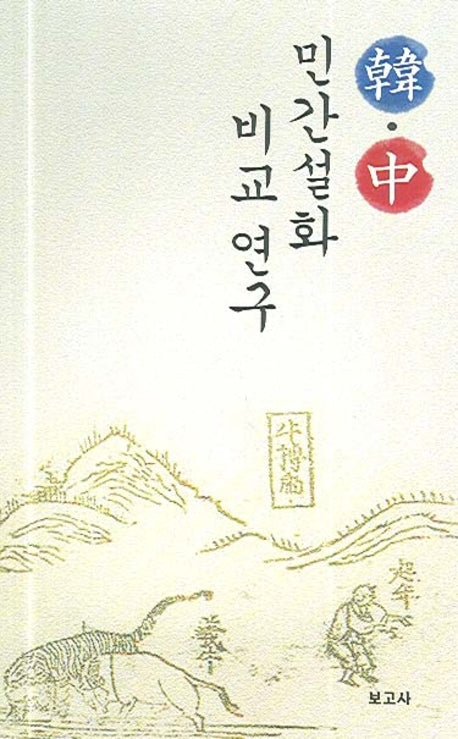 韓·中
민간설화
비교 연구
起年
보고사